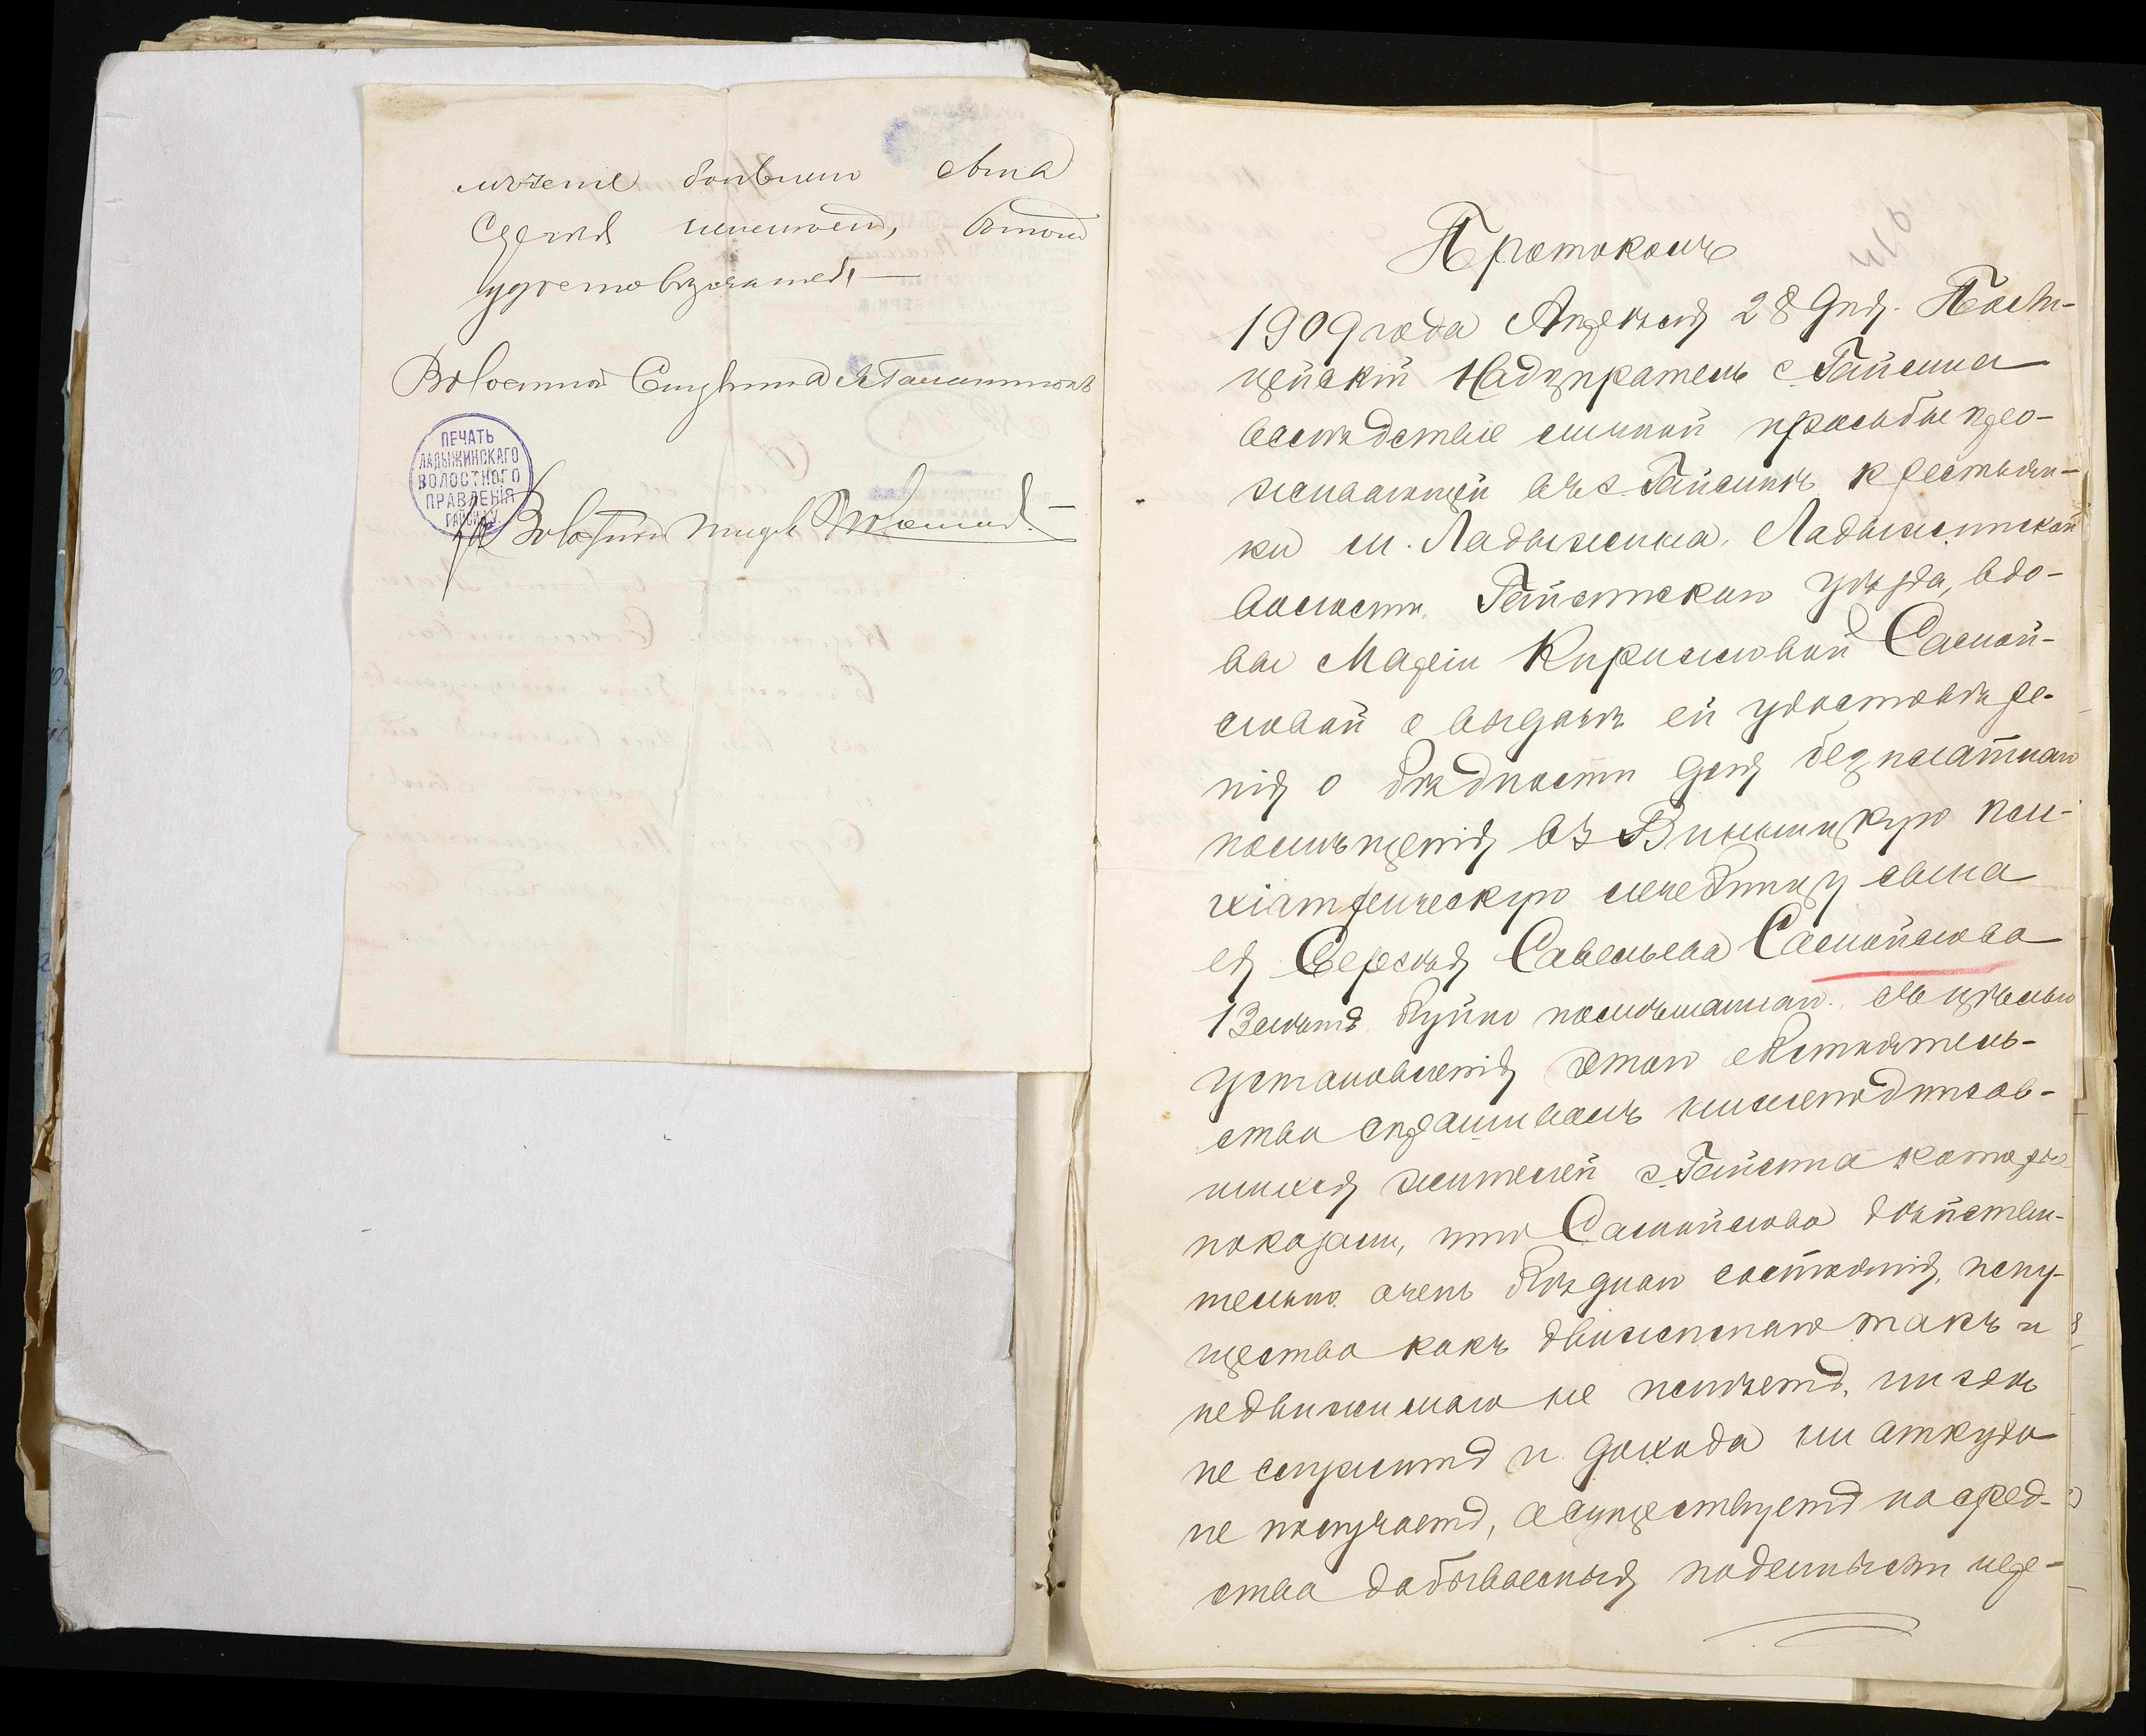 лѣченіе больнаго сына
Сергѣя неимѣетъ, въ томъ
удостовѣряетъ
Волостной Старшина
ПЕЧАТЬ
ЛАДЫЖИНСКАГО
ВОЛОСТНОГО
ПРАВЛЕНІЯ
ГАЙСИН. У.
Волостной писарь
Протоколъ
1909 года Апрѣля 28 дня. Поли-
цейскій Надзиратель г. Гайсина
вслѣдствіе личной просьбы про-
живающей въ г. Гайсинѣ крестьян-
ки м. Ладыжина, Ладыжинской
волости, Гайсинскаго уѣзда, вдо-
вы Маріи Кирилловой Самой-
ловой о выдачѣ ей удостовѣре-
нія о бѣдности для безплатнаго
помѣщенія въ Винницкую пси-
хіатрическую лечебницу сына
ея Сергѣя Савельева Самойлова
13 лѣтъ буйно помѣшаннаго. Съ цѣлью
установленія этого обстоятель-
ства спрашивалъ нижеподписав-
шихся жителей г. Гайсина которые
показали, что Самойлова дѣйстви-
тельно очень бѣднаго состоянія, иму-
щества какъ движимаго такъ и
недвижимаго не имѣетъ, ни гдѣ
не служитъ и дохода ни откуда
не получаетъ, а существуетъ на сред-
ства добываемыя поденнымъ чер-